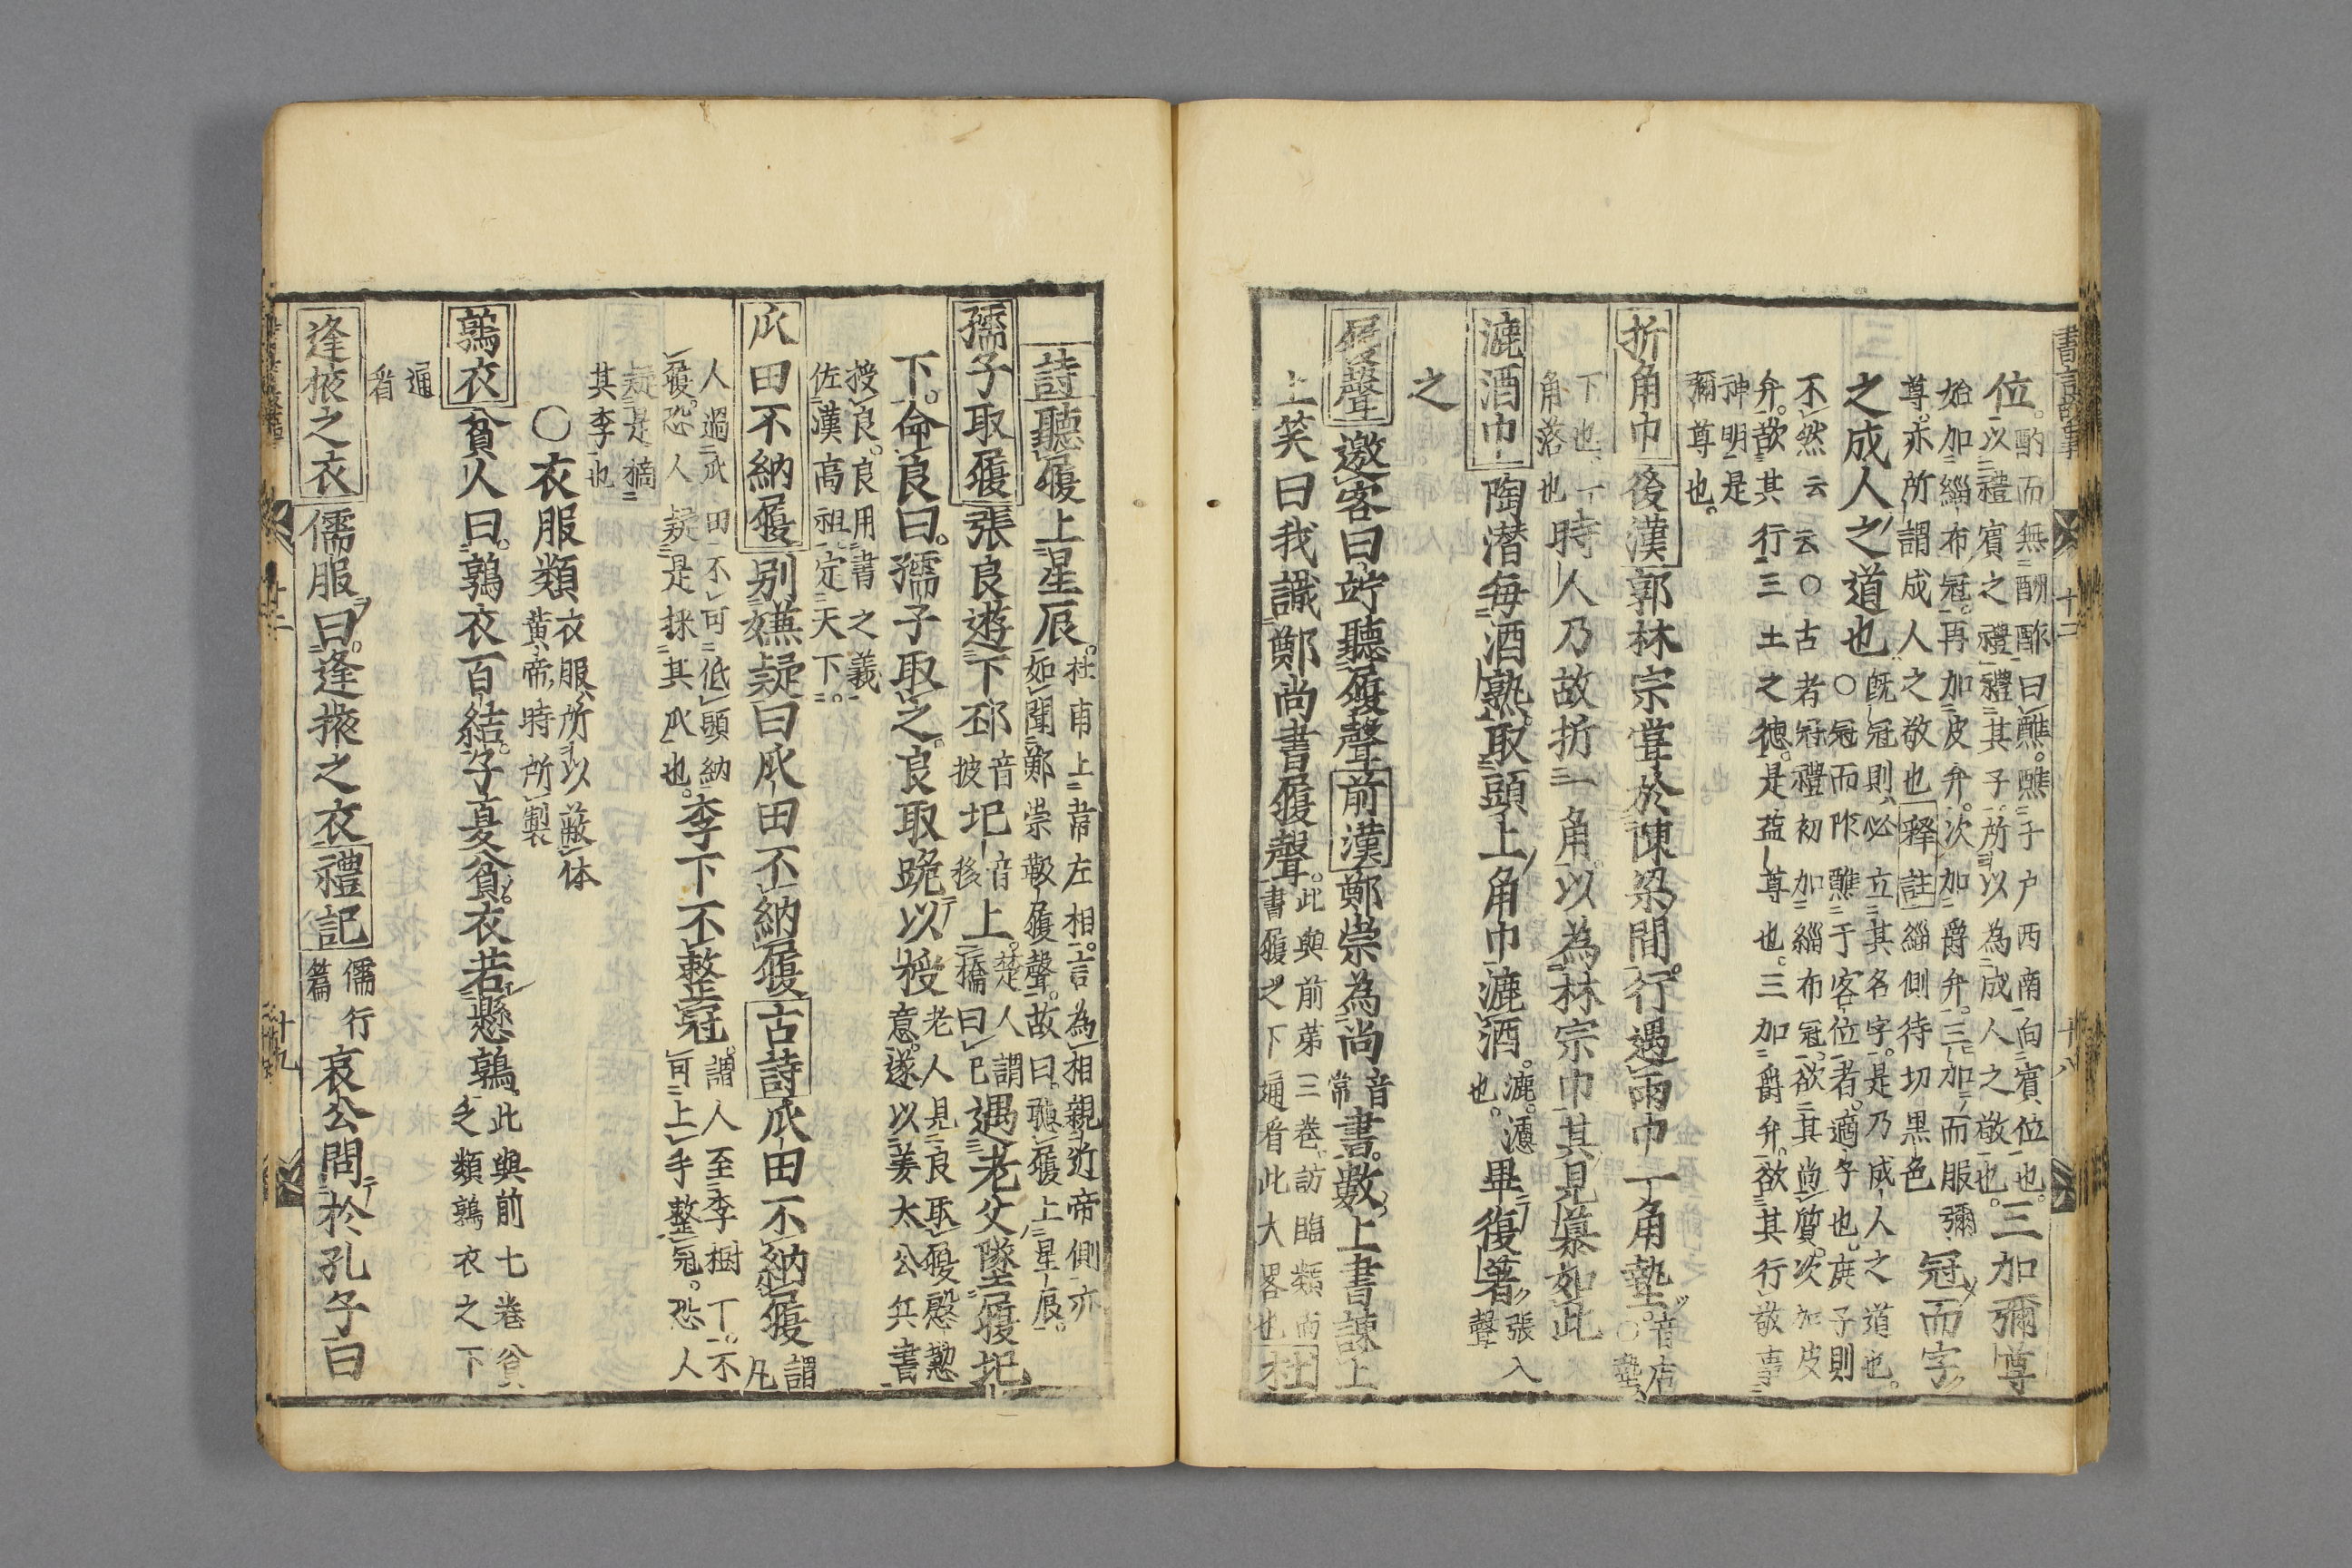 位酌而無酬酢曰醮醮子户西南向賓位也三加彌尊
以禮賓之禮禮其子所以為成人之敬也
始加緇布冠再加皮弁次加爵弁三加而服彌
尊亦所謂成人之敬也释註緇側待切黒色冠而字
之成人之道也既冠則必立其名字是乃成人之道也
○冠而阼醮于客位者適子也庶子則
不然云云○古者冠禮初加緇布冠欲其尚質次加皮
弁欲其行三土之德是益尊也三加爵弁欲其行敬事
神明是
彌尊也
折角巾後漢郭林宗甞於陳梁間行遇雨巾一角墊音店○墊
下也一時人乃故折一角以為林宗巾其見慕如此
角落也
漉酒巾陶潜毎酒熟取頭上角巾漉酒漉漉也畢復著張入聲
之
履聲邀客曰竚聽履聲前漢鄭崇為尚音常書數上書諫上
上笑曰我識鄭尚書履聲此與前苐三巻訪臨類而書履之下通看此大畧也杜
詩聽履上星辰杜甫上韋左相言為相親近帝側亦如聞鄭崇鞁履聲故曰聽履上星辰
孺子取履張良遊下邳音披圯音移上楚人謂橋曰圯遇老父墜履圯
下命良曰孺子取之良取跪以授老人見良取履慇懃意遂以姜太公兵書
授良良用書之義
佐漢高祖定天下
瓜田不納履别嫌疑曰瓜田不納履古詩瓜田不納履謂凡
人過瓜田不可低頭納李下不整冠謂人至李樹丁不
履恐人疑是採其瓜也可上手整冠恐人
疑是摘
其李也
○衣服類衣服所以蔽体黄帝時所製
鶉衣貧人曰鶉衣百結子夏貧衣若懸鶉此與前七巻貧乏類鶉衣之下
通看
逢掖之衣儒服曰逢掖之衣禮記儒行篇哀公問於孔子曰
書言故事 十二 十八
十二 十九